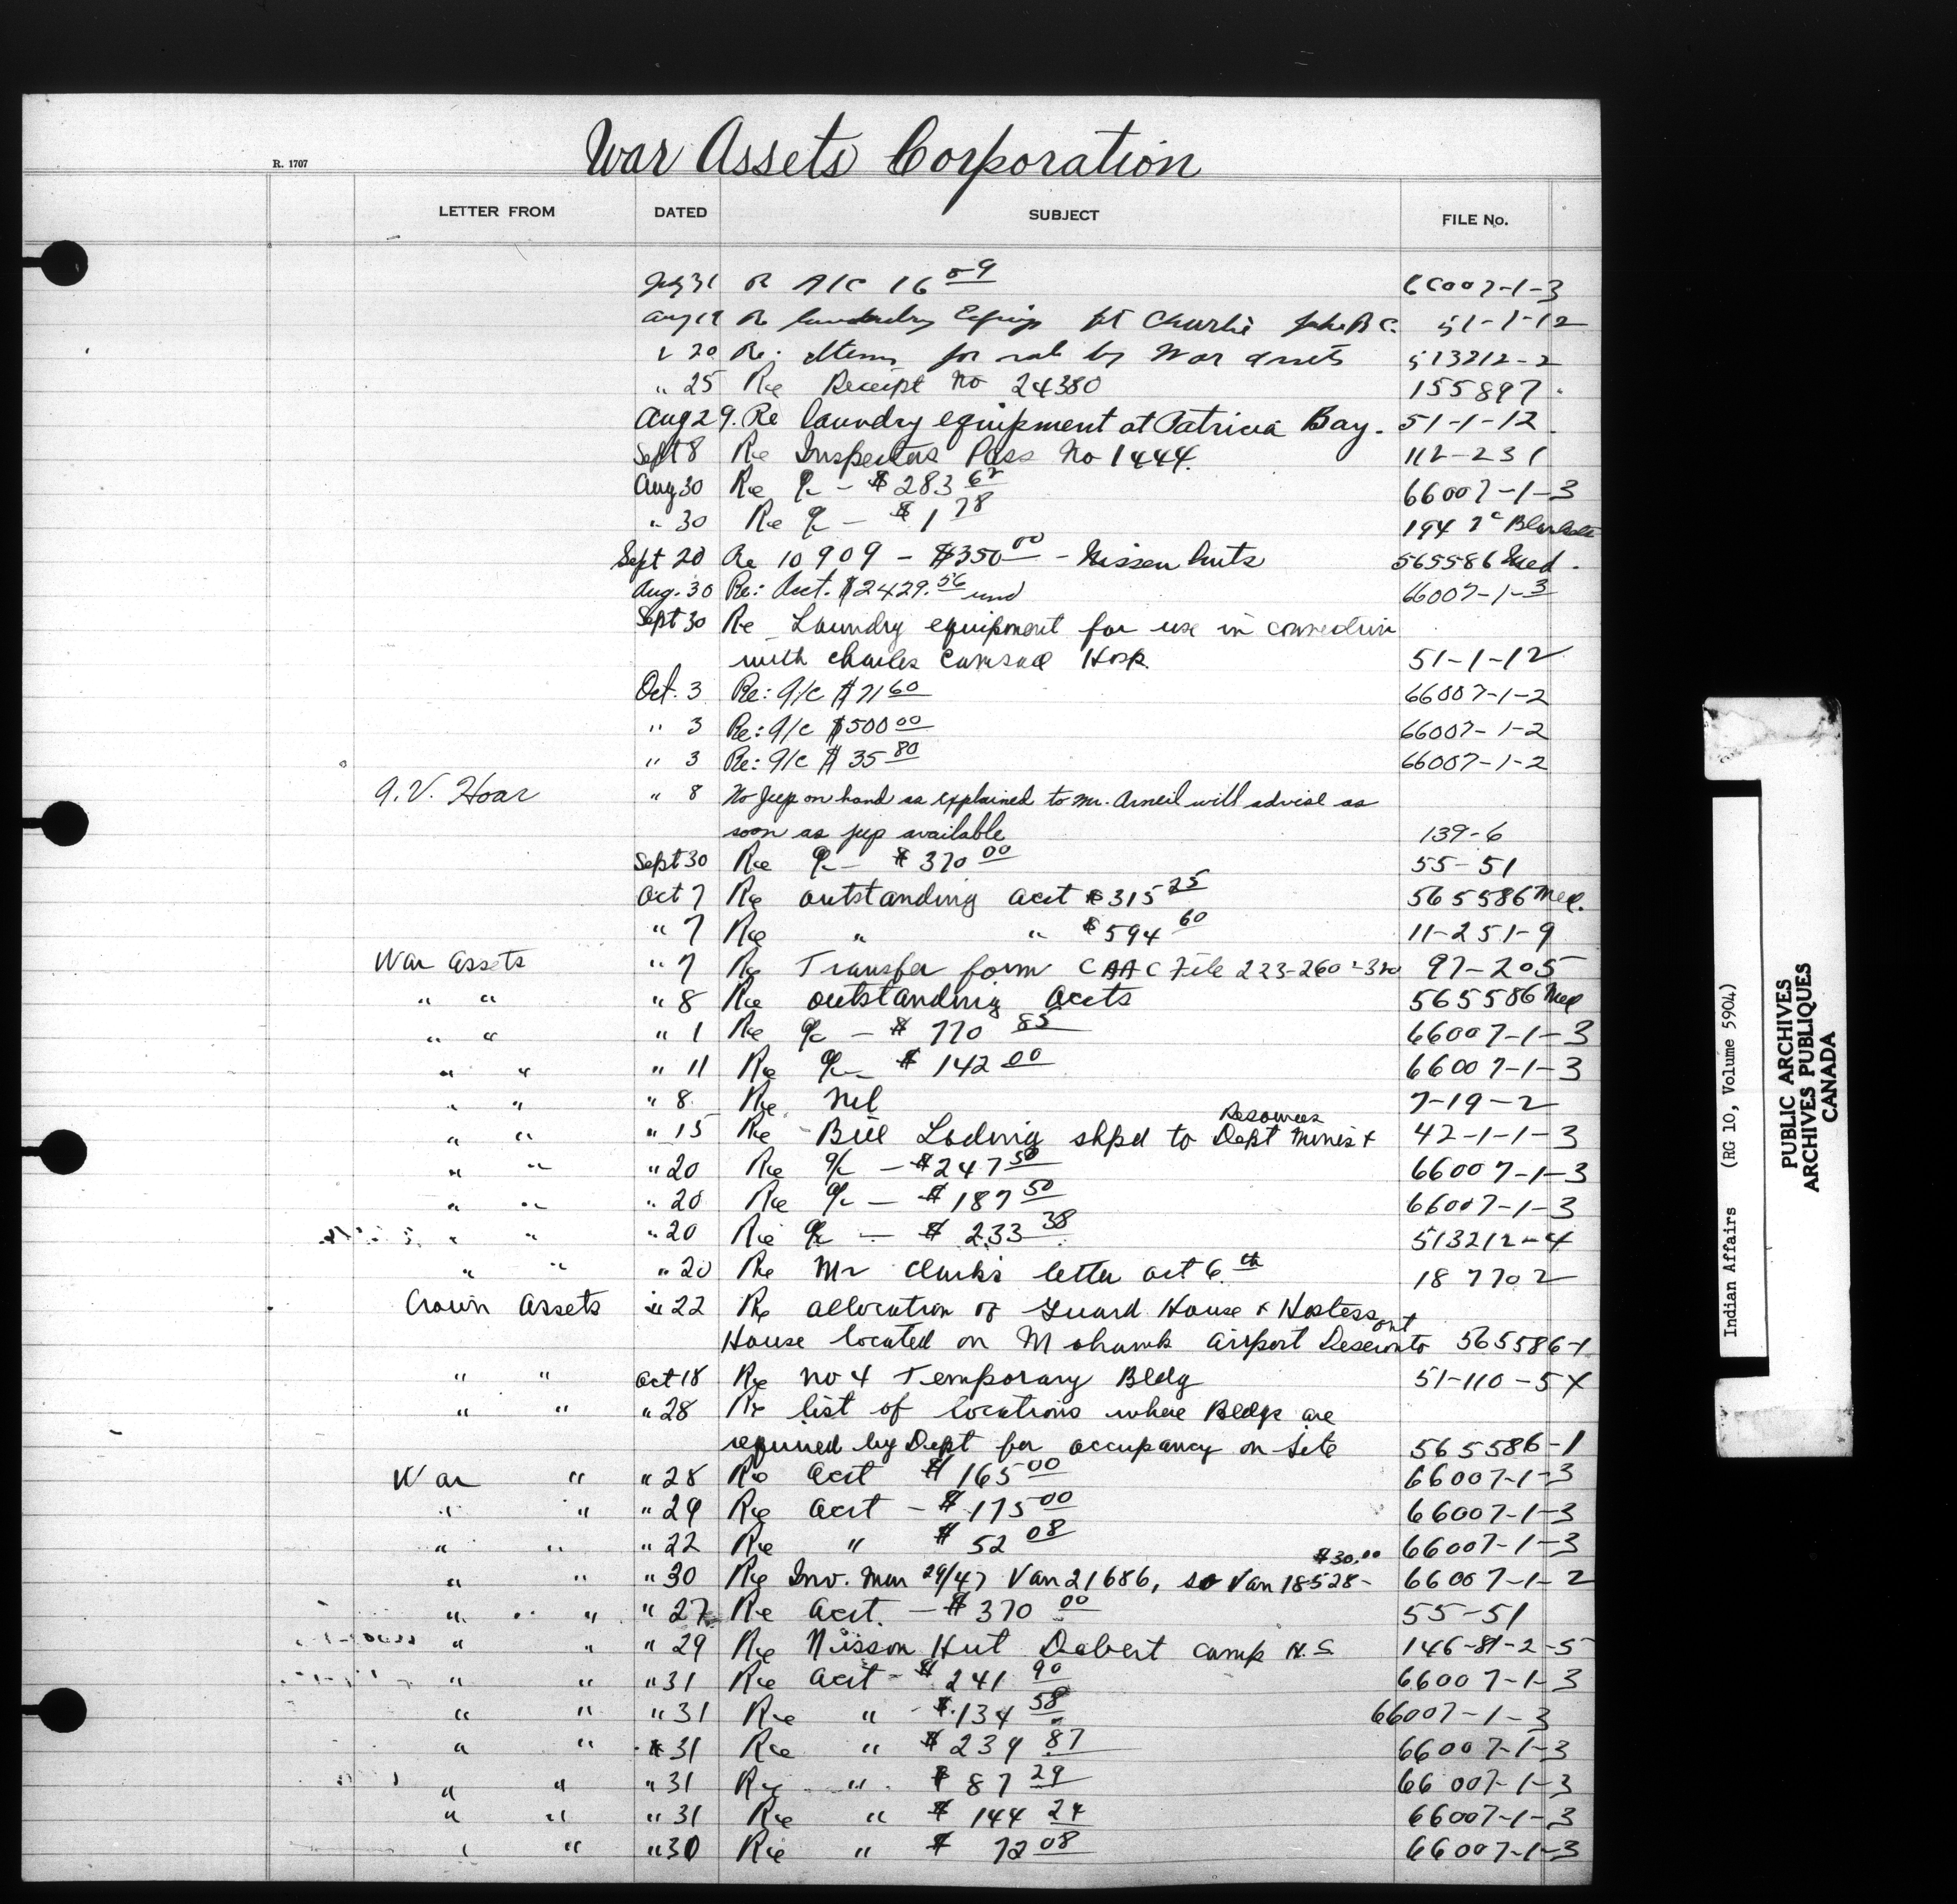 War Assets Corporation
R. 1707
LETTER FROM DATED SUBJECT FILE No.
July 31 Re A/C 16 09 66007-1-3
Aug 19 Re laundry Equip at Charlie Lake B.C. 51-1-12
" 20 Re: Items for sale by War Assets 513212-2
" 25 Re Receipt No 24380 155897
Aug 29. Re laundry equipment at Patricia Bay. 51-1-12
Sept 8 Re Inspectors Pass No 1444. 112-231
Aug 30 Re a/c - $283 62 66007-1-3
" 30 Re a/c - $1 78 194
Sept 20 Re 10909 - $350 00 - Nissen huts 565586 Med.
Aug. 30 Re: Acct. $2429.56 66007-1-3
Sept 30 Re Laundry equipment for use in connection
with Charles Camsell Hosp. 51-1-12
Oct. 3 Re: a/c $71 60 66007-1-2
" 3 Re: a/c $500 00 66007-1-2
" 3 Re: a/c $35 80 66007-1-2
A.V. Hoar " 8 No Jeep on hand as explained to Mr. Arneil will advise as
soon as jeep available 139-6
Sept 30 Re a/c - $370 00 55-51
Oct 7 Re outstanding acct $315 25 565586 Med.
" 7 Re " " $594 60 11-251-9
War Assets " 7 Re Transfer form CAAC File 223-260-320 97-205
" " " 8 Re outstanding accts 565586 Med
" " " 1 Re a/c - $770 85 66007-1-3
" " " 11 Re a/c - $142 00 66007-1-3
" " " 8 Re Nil 7-19-2
" " " 15 Re Bill Lading shpd to Dept Mines & Resources 42-1-1-3
" " " 20 Re a/c - $247 50 66007-1-3
" " " 20 Re a/c - $187 50 66007-1-3
" " " 20 Re a/c - $233 38 513212-4
" " " 20 Re Mr Clark's letter Oct 6th 187702
Crown Assets " 22 Re allocation of Guard House & Hostess
House located on Mohawk Airport Deseronto Ont 565586-1
" " Oct 18 Re No 4 Temporary Bldg 51-110-5X
" " " 28 Re list of locations where Bldgs are
required by Dept for occupancy on site 565586-1
War " " 28 Re Acct $165 00 66007-1-3
" " " 29 Re Acct - $175 00 66007-1-3
" " " 22 Re " $52 08 66007-1-3
" " " 30 Re Inv. Mar 29/47 Van 21686, so Van 18528- $30.00 66007-1-2
" " " 27 Re Acct. - $370 00 55-51
" " " 29 Re Nisson Hut Debert Camp N.S 146-81-2-5
" " " 31 Re Acct - $241 90 66007-1-3
" " " 31 Re " $134 58 66007-1-3
" " " 31 Re " $239 87 66007-1-3
" " " 31 Re " $87 29 66007-1-3
" " " 31 Re " $144 24 66007-1-3
" " " 30 Re " $72 08 66007-1-3
Indian Affairs (RG 10, Volume 5904)
PUBLIC ARCHIVES
ARCHIVES PUBLIQUES
CANADA